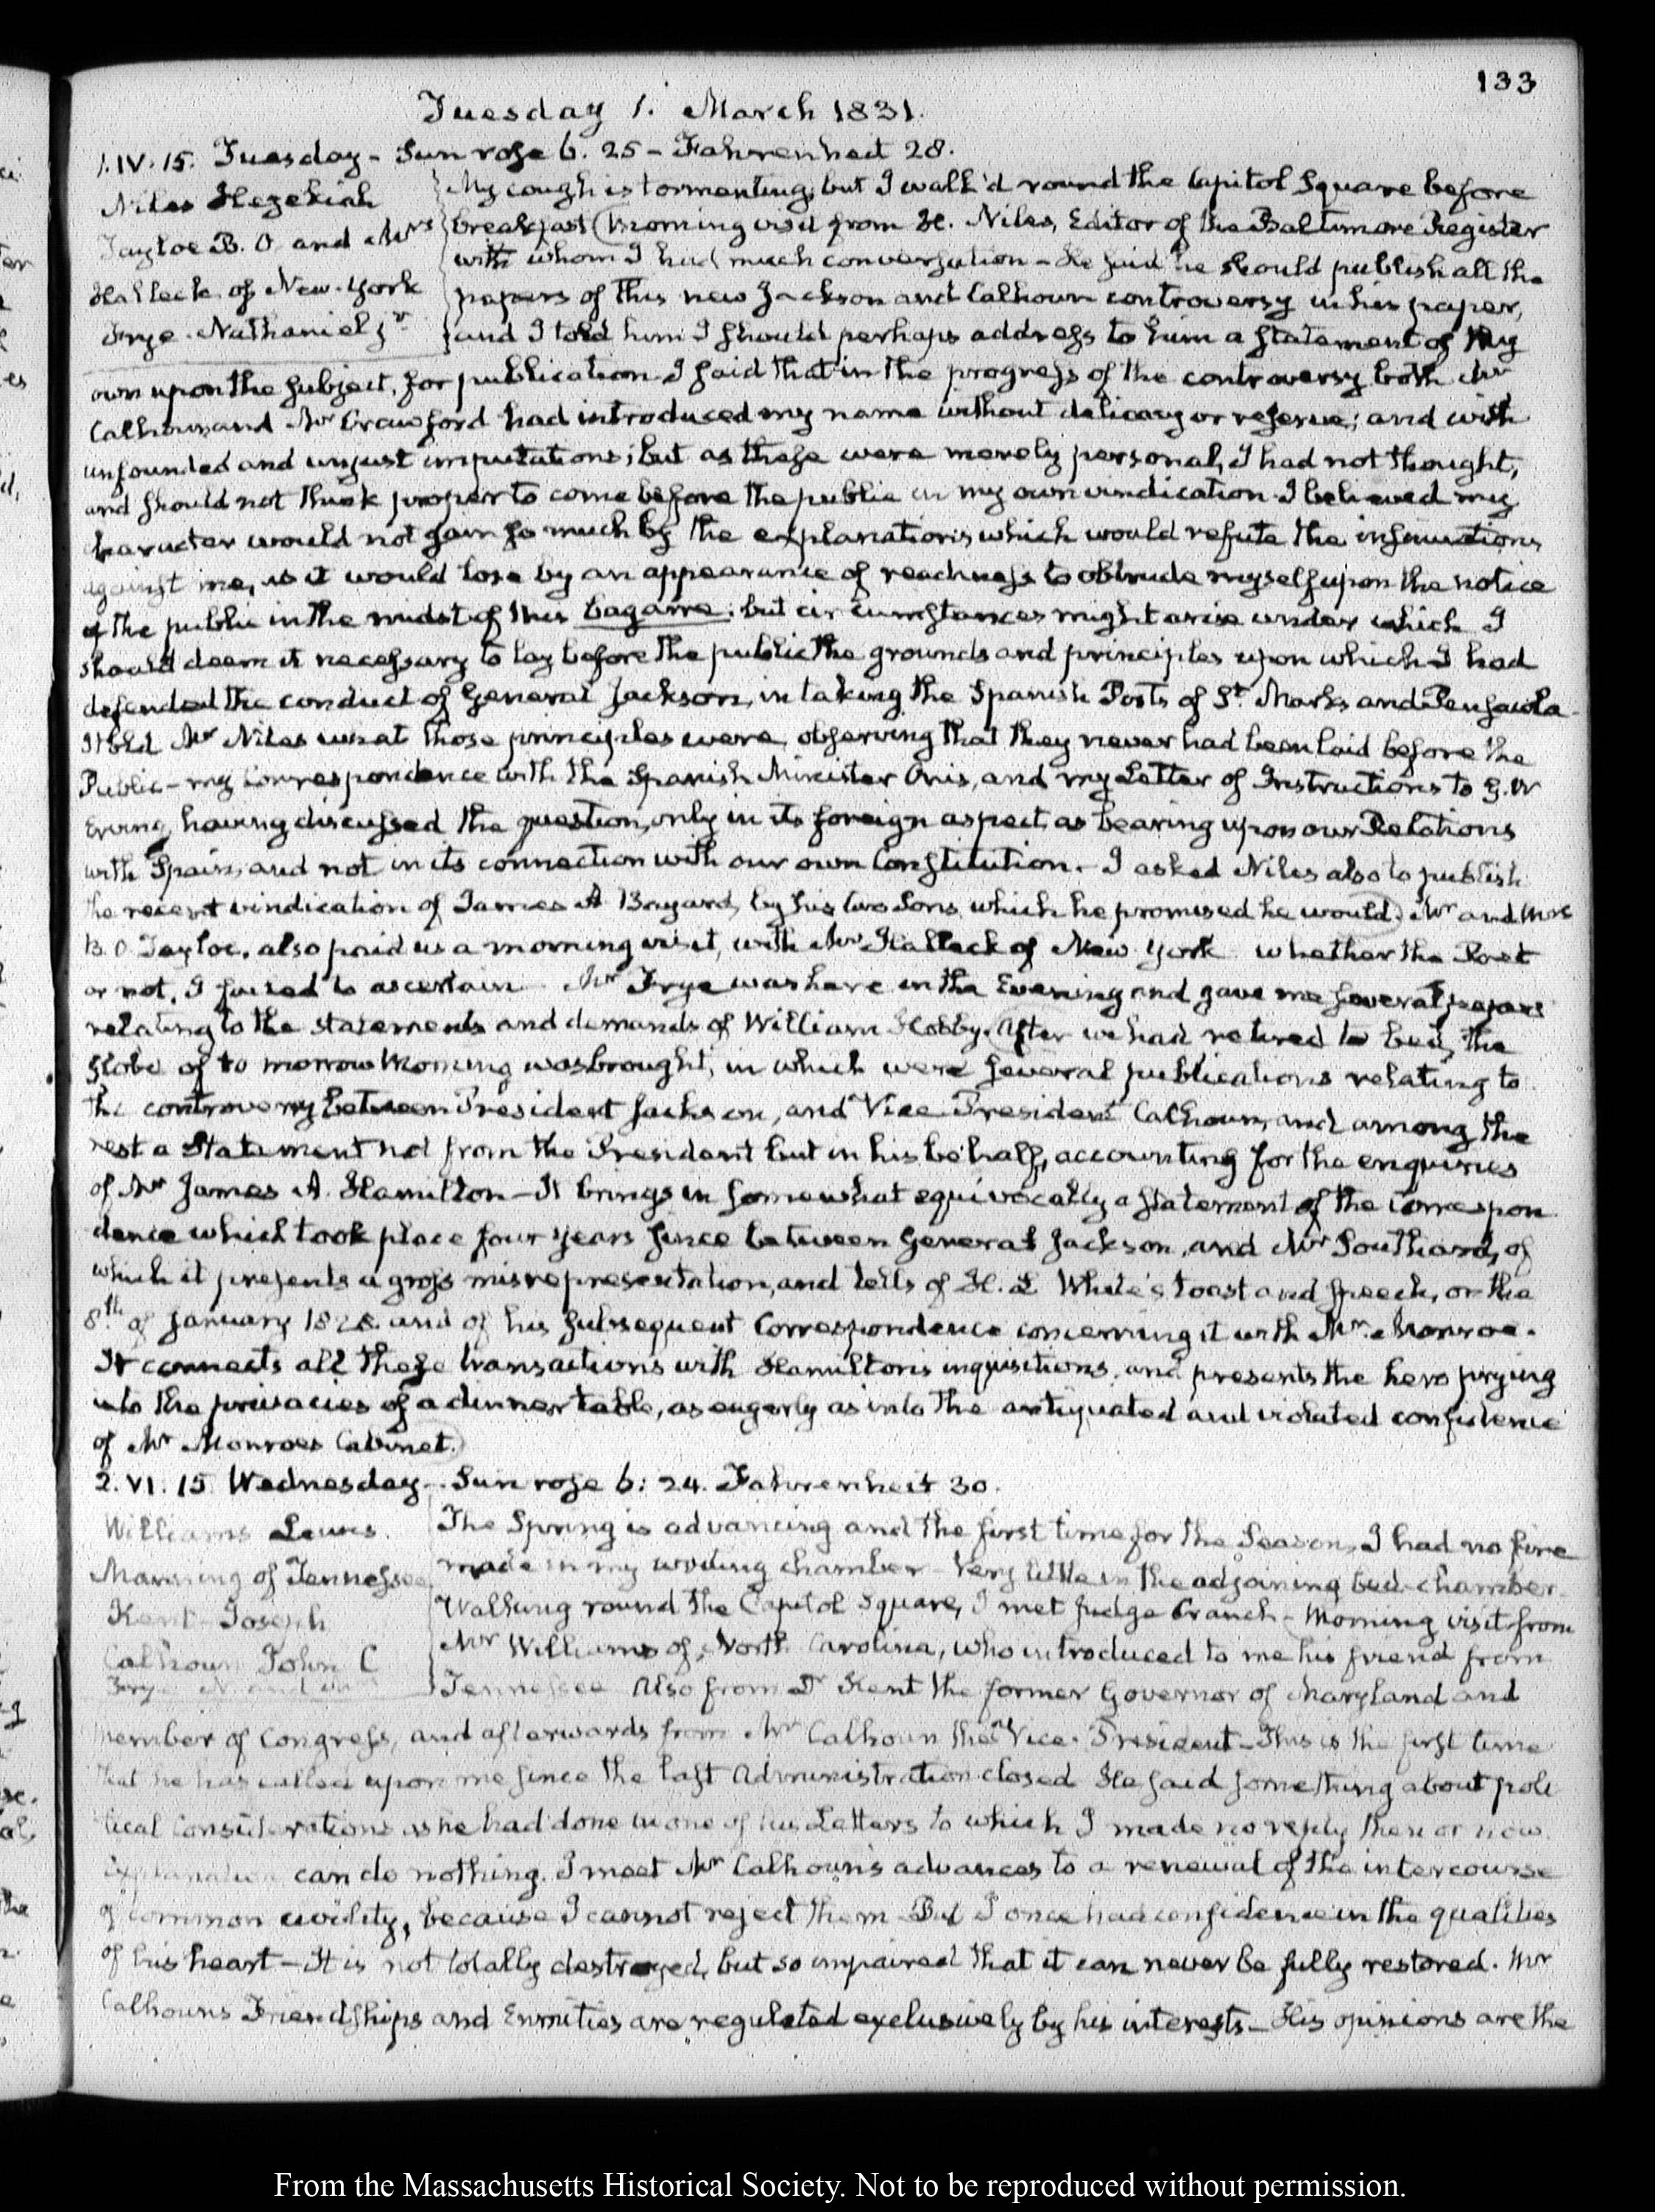 133
Tuesday 1. March 1831.
1. IV. 15. Tuesday - Sun rose 6. 25 - Fahrenheit 28.
Niles Hezekiah
Tayloe B. O. and Mrs
Halleck of New-York
Frye. Nathaniel jr
My cough is tormenting, but I walk'd round the Capitol Square before
breakfast (Morning visit from H. Niles, Editor of the Baltimore Register
with whom I had much conversation - He said he should publish all the
papers of this new Jackson and Calhoun controversy in his paper,
and I told him I should perhaps address to him a statement of my
own upon the subject, for publication. I said that in the progress of the controversy both Mr
Calhoun and Mr Crawford had introduced my name without delicacy or reserve; and with
unfounded and unjust imputations; but as these were merely personal, I had not thought,
and should not think proper to come before the public in my own vindication. I believed my
character would not gain so much by the explanations which would refute the insinuations
against me, as it would lose by an appearance of readiness to obtrude myself upon the notice
of the public in the midst of this bagarre: but circumstances might arise under which I
should deem it necessary to lay before the public the grounds and principles upon which I had
defended the conduct of General Jackson, in taking the Spanish Posts of St. Marks and Pensacola -
I told Mr Niles what those principles were, observing that they never had been laid before the
Public - my correspondence with the Spanish Minister Onis, and my Letter of Instructions to G. W
Erving, having discussed the question, only in its foreign aspect, as bearing upon our Relations
with Spain, and not in its connection with our own Constitution. I asked Niles also to publish
the recent vindication of James A Bayard, by his two Sons, which he promised he would.) Mr and Mrs
B. O Tayloe, also paid us a morning visit, with Mr Halleck of New York whether the Poet
or not, I failed to ascertain. Mr Frye was here in the Evening and gave me several papers
relating to the statements and demands of William Hobby. (After we had retired to bed, the
Globe of to morrow Morning was brought, in which were several publications relating to
the controversy between President Jackson, and Vice President Calhoun, and among the
rest a Statement not from the President but in his behalf, accounting for the enquiries
of Mr James A. Hamilton - It brings in somewhat equivocally a statement of the correspon
dence which took place four years since between General Jackson, and Mr Southard, of
which it presents a gross misrepresentation, and tells of H. L White's toast and speech, on the
8th of January 1828. and of his subsequent Correspondence concerning it with Mr. Monroe.
It connects all these transactions with Hamilton's inquisitions, and presents the hero prying
into the privacies of a dinner table, as eagerly as into the antiquated and violated confidence
of Mr Monroes Cabinet.)
2. VI. 15 Wednesday - Sun rose 6: 24. Fahrenheit 30.
Williams Lewis.
Manning of Tennessee
Kent Joseph
Calhoun John C
Frye N. and
The Spring is advancing and the first time for the Season, I had no fire
made in my writing chamber - Very little in the adjoining bed-chamber.
Walking round the Capitol Square, I met Judge Cranch - (Morning visit from
Mr Williams of North Carolina, who introduced to me his friend from
Tennessee Also from Dr Kent the former Governor of Maryland and
member of Congress, and afterwards from Mr Calhoun the Vice-President - This is the first time
that he has called upon me since the last Administration closed He said something about poli
tical Considerations as he had done in one of his Letters to which I made no reply then or now
Explanation can do nothing. I meet Mr Calhoun's advances to a renewal of the intercourse
of common civility, because I cannot reject them But I once had confidence in the qualities
of his heart - It is not totally destroyed, but so impaired that it can never be fully restored. Mr
Calhouns Friendships and Enmities are regulated exclusively by his interests - His opinions are the
From the Massachusetts Historical Society. Not to be reproduced without permission.